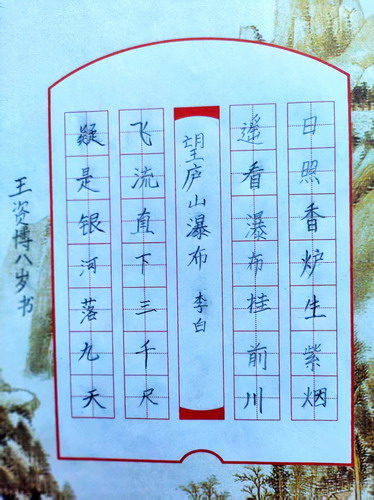 日照香炉生紫烟
遥看瀑布挂前川
望庐山瀑布 李白
飞流直下三千尺
疑是银河落九天
王资博八岁书